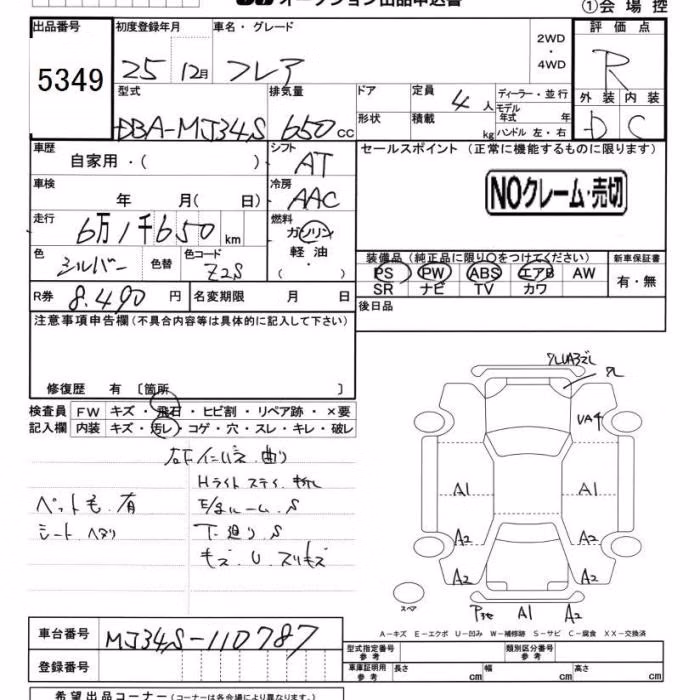 オークション出品申込書
①会場控
出品番号
5349
初度登録年月
25 12月
車名・グレード
フレア
2WD
・
4WD
評価点
R
型式
DBA-MJ34S
排気量
650 cc
ドア
定員
4人
ディーラー・並行
モデル年式 年
形状
積載
kg
ハンドル 左・右
外装 内装
D C
車歴
自家用・( )
シフト
AT
セールスポイント (正常に機能するものに限ります)
NOクレーム・売切
車検
年 月( 日)
冷房
AAC
走行
6万1千650 km
燃料
ガソリン
軽油
( ・ )
色
シルバー
色替
色コード
Z2S
装備品 (純正品に限り○をつけてください)
PS PW ABS エアB AW
SR ナビ TV カワ
新車保証書
有・無
R券 8.490 円
名変期限 月 日
後日品
注意事項申告欄 (不具合内容等は具体的に記入して下さい)
修復歴 有 〔箇所 〕
検査員
記入欄
FW キズ・飛石・ヒビ割・リペア跡・×要
内装 キズ・汚レ・コゲ・穴・スレ・キレ・破レ
曲り
Hライト ステイ 折レ
ペット毛 有
ルーム S
シート ヘタリ
下廻り S
キズ U スリキズ
UA4
A1 A1
A2 A2
A2 A2
スペア
A1 A2
A-キズ E-エクボ U-凹み W-補修跡 S-サビ C-腐食 XX-交換済
車台番号
MJ34S-110787
型式指定番号 参考
類別区分番号 参考
登録番号
車庫証明用 参考
長さ cm
幅 cm
高さ cm
希望出品コーナー (コーナーは各会場により異なります)